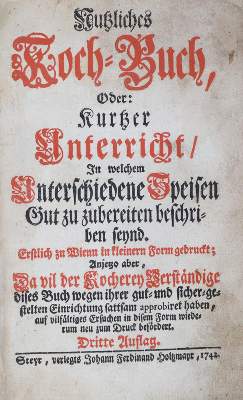 Nutzliches
Koch-Buch,
Oder:
Kurtzer
Unterricht/
In welchem
Unterschiedene Speisen
Gut zu zubereiten beschri-
ben seynd.
Erstlich zu Wienn in kleinern Form gedruckt;
Anjezo aber,
Da vil der Kocherey Verständige
dises Buch wegen ihrer gut- und sicher-ge-
stelten Einrichtung sattsam approbiret haben,
auf vilfältiges Ersuchen in disem Form wiede-
rum neu zum Druck befördert.
Dritte Auflag.
Steyr, verlegts Johann Ferdinand Holtzmayr, 1742.